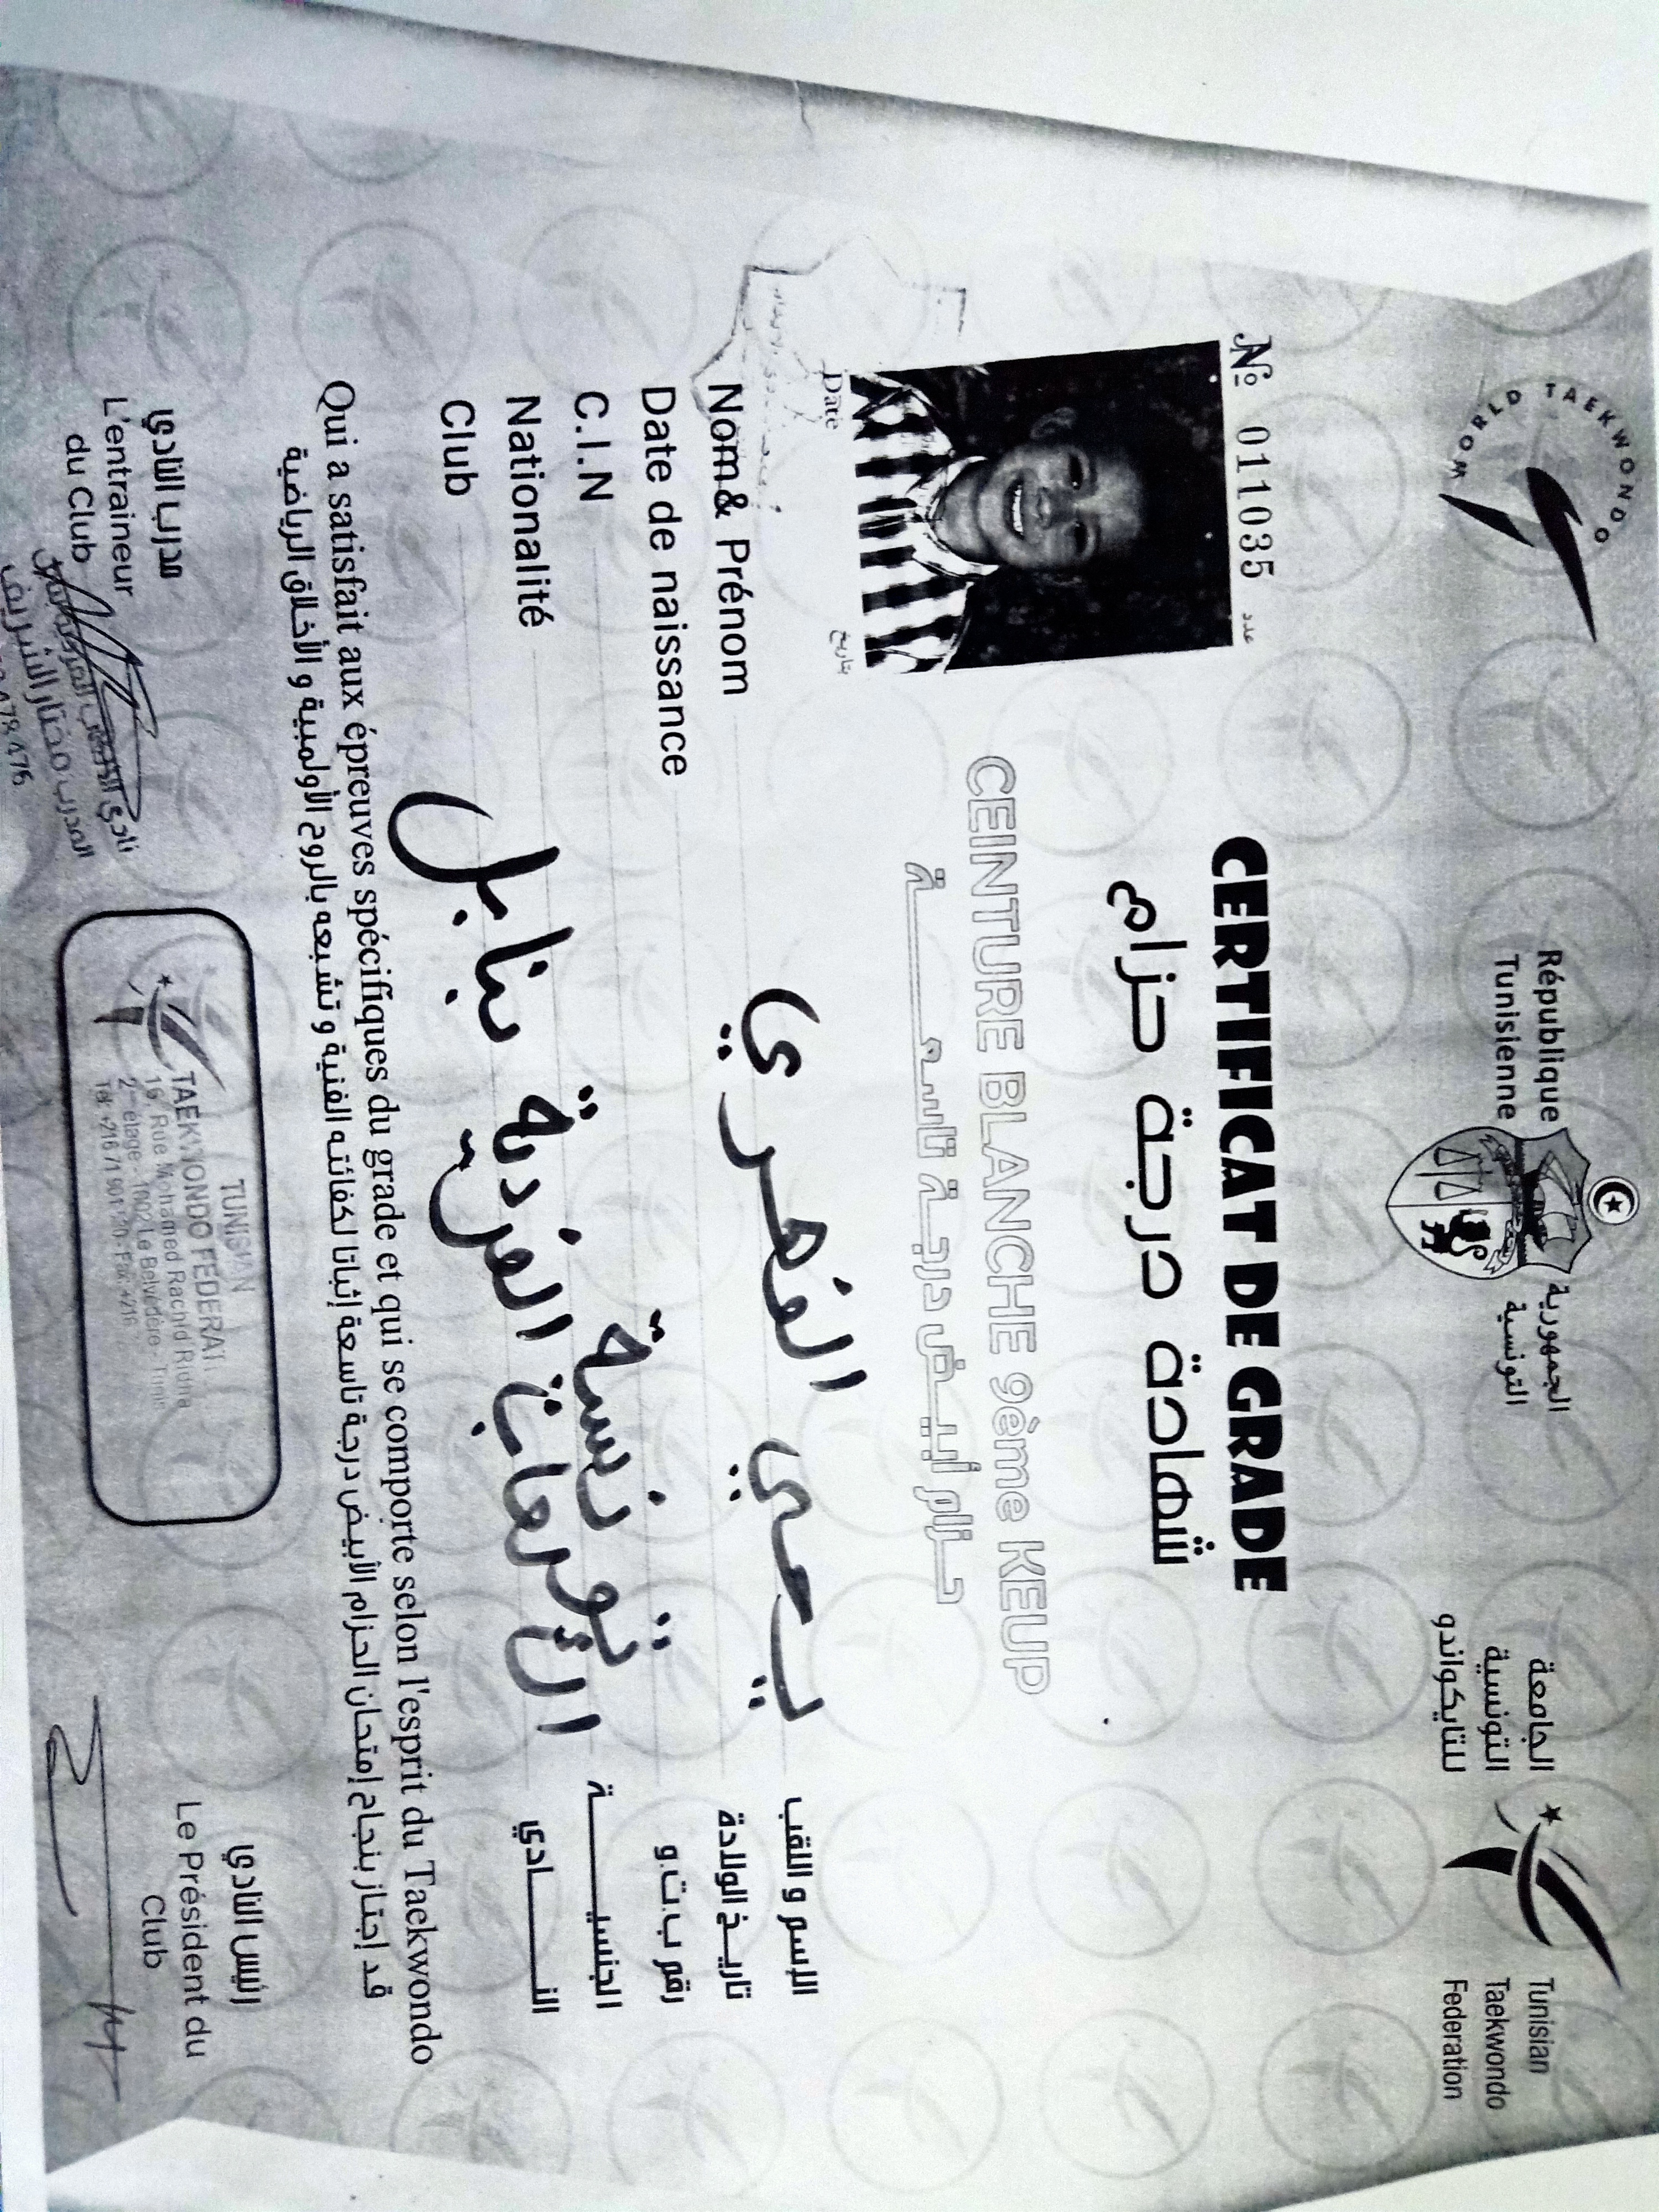 WORLD TAEKWONDO
République
Tunisienne
الجمهورية
التونسية
الجامعة
التونسية
للتايكواندو
Tunisian
Taekwondo
Federation
№ 011035 عدد
CERTIFICAT DE GRADE
شهادة درجة حزام
CEINTURE BLANCHE 9ème KEUP
حـزام أبيــض درجـة تاسعـة
Date تاريخ
Nom& Prénom يحي الفهري الإسم و اللقب
Date de naissance تاريـخ الولادة
C.I.N رقم ب.ت.و
Nationalité تونسية الجنسيـــــة
Club الرياضات الفردية بنابل النـــــادي
Qui a satisfait aux épreuves spécifiques du grade et qui se comporte selon l'esprit du Taekwondo
قد إجتاز بنجاح إمتحان الحزام الأبيض درجة تاسعة إثباتا لكفائته الفنية و تشبعه بالروح الأولمبية و الأخلاق الرياضية
مدرب النادي
L'entraineur
du Club
نادي
المدرب مختار الشريف
TUNISIAN
TAEKWONDO FEDERATI
16, Rue Mohamed Rachid Ridha
2ème étage - 1002 Le Belvédère - Tunis
Tél: +216 71 901 120 - Fax: +216
رئيس النادي
Le Président du
Club